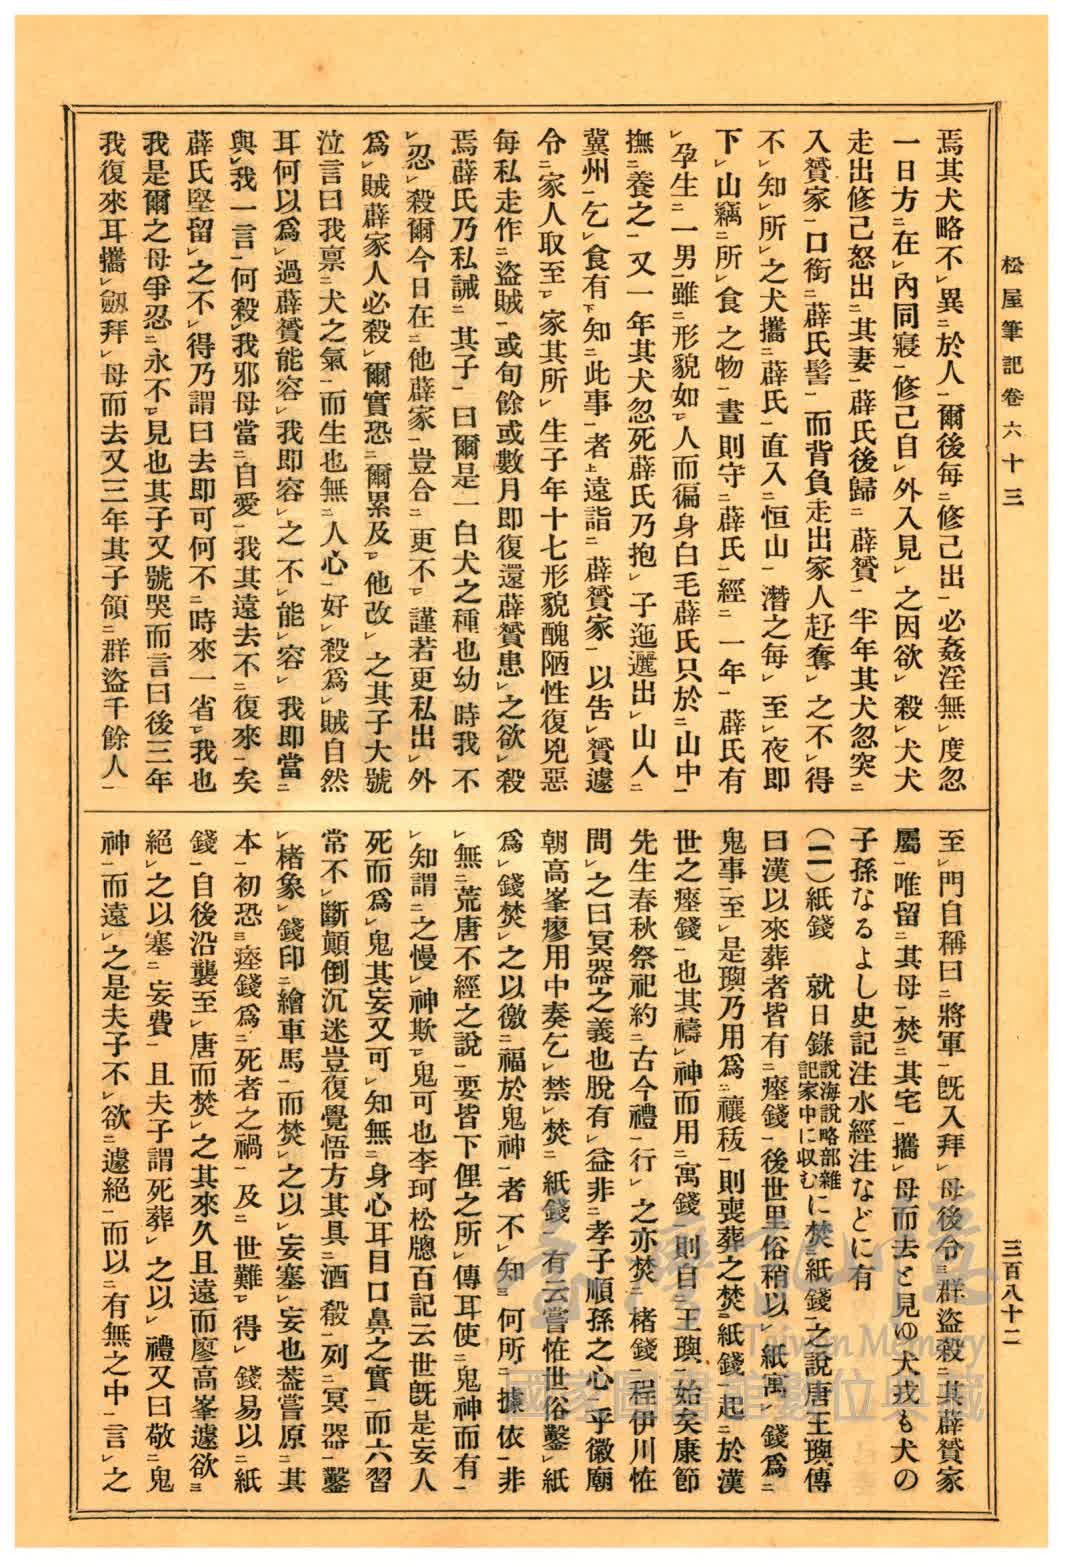 松屋筆記卷六十三
三百八十二
焉其犬略不㆑異㆓於人㆒爾後每㆓修己出㆒必姦淫無㆑度忽
一日方㆓在㆑內同寢㆒修己自㆑外入見㆑之因欲㆑殺㆑犬犬
走出修己怒出㆓其妻㆒薜氏後歸㆓薜贇㆒半年其犬忽突㆓
入贇家㆒口銜㆓薜氏髻㆒而背負走出家人赶奪㆑之不㆑得
不㆑知㆑所㆑之犬攜㆓薜氏㆒直入㆓恒山㆒潛之每㆑至㆑夜卽
下㆑山竊㆓所㆑食之物㆒晝則守㆓薜氏㆒經㆓一年㆒薜氏有
㆑孕生㆓一男㆒雖㆓形貌如㆒㆑人而徧身白毛薜氏只於㆓山中㆒
撫㆓養之㆒又一年其犬忽死薜氏乃抱㆑子迤邐出㆑山入㆓
冀州㆒乞㆑食有㆘知㆓此事㆒者㆖遠詣㆓薜贇家㆒以吿㆑贇遽
令㆓家人取至㆒㆑家其所㆑生子年十七形貌醜陋性復兇惡
每私走作㆓盜賊㆒或旬餘或數月卽復還薜贇患㆑之欲㆑殺
焉薜氏乃私誡㆓其子㆒曰爾是一白犬之種也幼時我不
㆑忍㆑殺爾今日在㆓他薜家㆒豈合㆓更不㆒㆑謹若更私出㆑外
爲㆑賊薜家人必殺㆑爾實恐㆓爾累及㆒㆑他改㆑之其子大號
泣言曰我稟㆓犬之氣㆒而生也無㆓人心㆒好㆑殺爲㆑賊自然
耳何以爲㆑過薜贇能容㆑我卽容㆑之不㆑能㆑容㆑我卽當㆘
與㆑我一言㆖何殺㆑我邪母當㆓自愛㆒我其遠去不㆓復來㆒矣
薜氏堅留㆑之不㆑得乃謂曰去卽可何不㆓時來一省㆒㆑我也
我是爾之母爭忍㆓永不㆒㆑見也其子又號哭而言曰後三年
我復來耳攜㆑劔拜㆑母而去又三年其子領㆓群盜千餘人㆒
至㆑門自稱曰㆓將軍㆒旣入拜㆑母後令㆔群盜殺㆓其薜贇家
屬㆒唯留㆓其母㆒焚㆓其宅㆒攜㆑母而去と見ゆ犬戎も犬の
子孫なるよし史記注水經注などに有
（二）紙錢　就日錄說海說略部雜記家中に收むに焚㆓紙錢㆒之說唐王璵傳
曰漢以來葬者皆有㆓瘞錢㆒後世里俗稍以㆑紙寓㆑錢爲㆓
鬼事㆒至㆑是璵乃用爲㆓禳祓㆒則喪葬之焚㆓紙錢㆒起㆓於漢
世之瘞錢㆒也其禱㆑神而用㆓寓錢㆒則自㆓王璵㆒始矣康節
先生春秋祭祀約㆓古今禮㆒行㆑之亦焚㆓楮錢㆒程伊川怪
問㆑之曰冥器之義也脫有㆑益非㆓孝子順孫之心㆒乎徽廟
朝高峯廖用中奏乞㆑禁㆑焚㆓紙錢㆒有云嘗怪世俗鑿㆑紙
爲㆑錢焚㆑之以徼㆓福於鬼神㆒者不㆑知㆔何所㆓據依㆒非
㆑無㆓荒唐不經之說㆒要皆下俚之所㆑傳耳使㆓鬼神而有㆒
㆑知謂㆓之慢㆑神欺㆒㆑鬼可也李珂松牕百記云世旣是妄人
死而爲㆑鬼其妄又可㆑知無㆓身心耳目口鼻之實㆒而六習
常不㆑斷顚倒沉迷豈復覺悟方其具㆓酒殽㆒列㆓冥器㆒鑿
㆑楮象㆑錢印㆓繪車馬㆒而焚㆑之以㆑妄塞㆑妄也葢嘗原㆓其
本㆒初恐㆘瘞錢爲㆓死者之禍㆒及㆓世難㆒㆑得㆑錢易以㆓紙
錢㆒自後沿襲至㆑唐而焚㆑之其來久且遠而廖高峯遽欲㆘
絕㆑之以塞㆓妄費㆒且夫子謂死葬㆑之以㆑禮又曰敬㆓鬼
神㆒而遠㆑之是夫子不㆑欲㆓遽絕㆒而以㆓有無之中㆒言㆑之